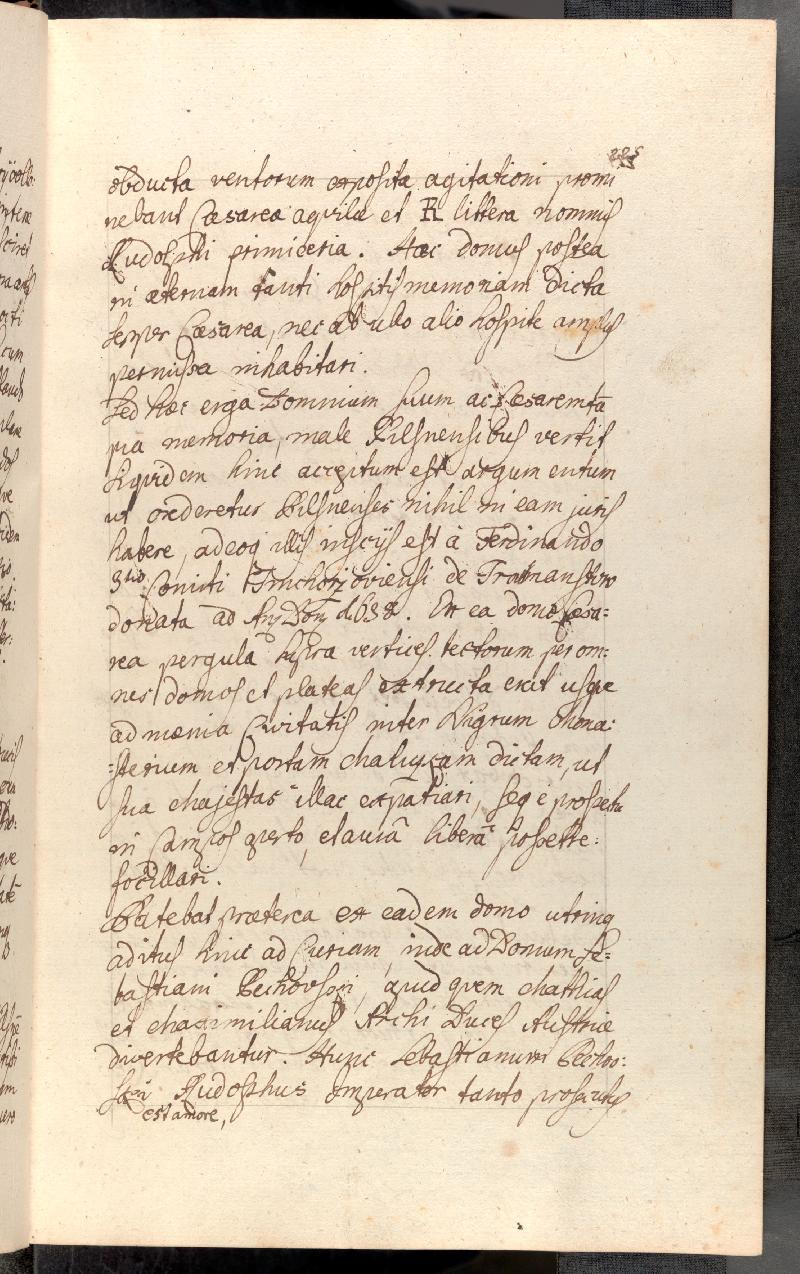 225
obducta ventorum exposita agitationi promi
nebant Cæsareæ aquilæ et R littera nominis
Rudolphi primiceria. Hæc domus postea
in æternam tanti hospitis memoriam dicta
semper Cæsarea, nec ab ullo alio hospite amplius
permissa inhabitari.
Sed hæc erga Dominum suum ac Cæsarem tã
pia memoria, male Pilsnensibus vertit
siquidem hinc acceptum est argumentum
ut crederetur Pilsnenses nihil in eam juris
habere, adeoq illis insciis est à Ferdinando
3tio Comiti de
donata ad An Dom 1638. Ex ea domo Cæsa=
rea pergula supra vertices tectorum per om=
nes domos et plateas extructa erat usque
ad mœnia Civitatis inter Nigrum Mona=
=sterium et portam Malicam dictam, ut
sua Majestas illac expatiari, seq è prospectu
in campos aperto, et aurâ liberâ posset re=
focillari.
Patebat præterea ex eadem domo utrinq
aditus hinc ad Curiam inde ad Domum Se=
bastiani Pechovsky, apud quem Mathias
et Maximilianus Archi Duces Austriæ
divertebantur. Hunc Sebastianum Pechov=
sky Rudolphus Imperator tanto prosecutus
est amore,